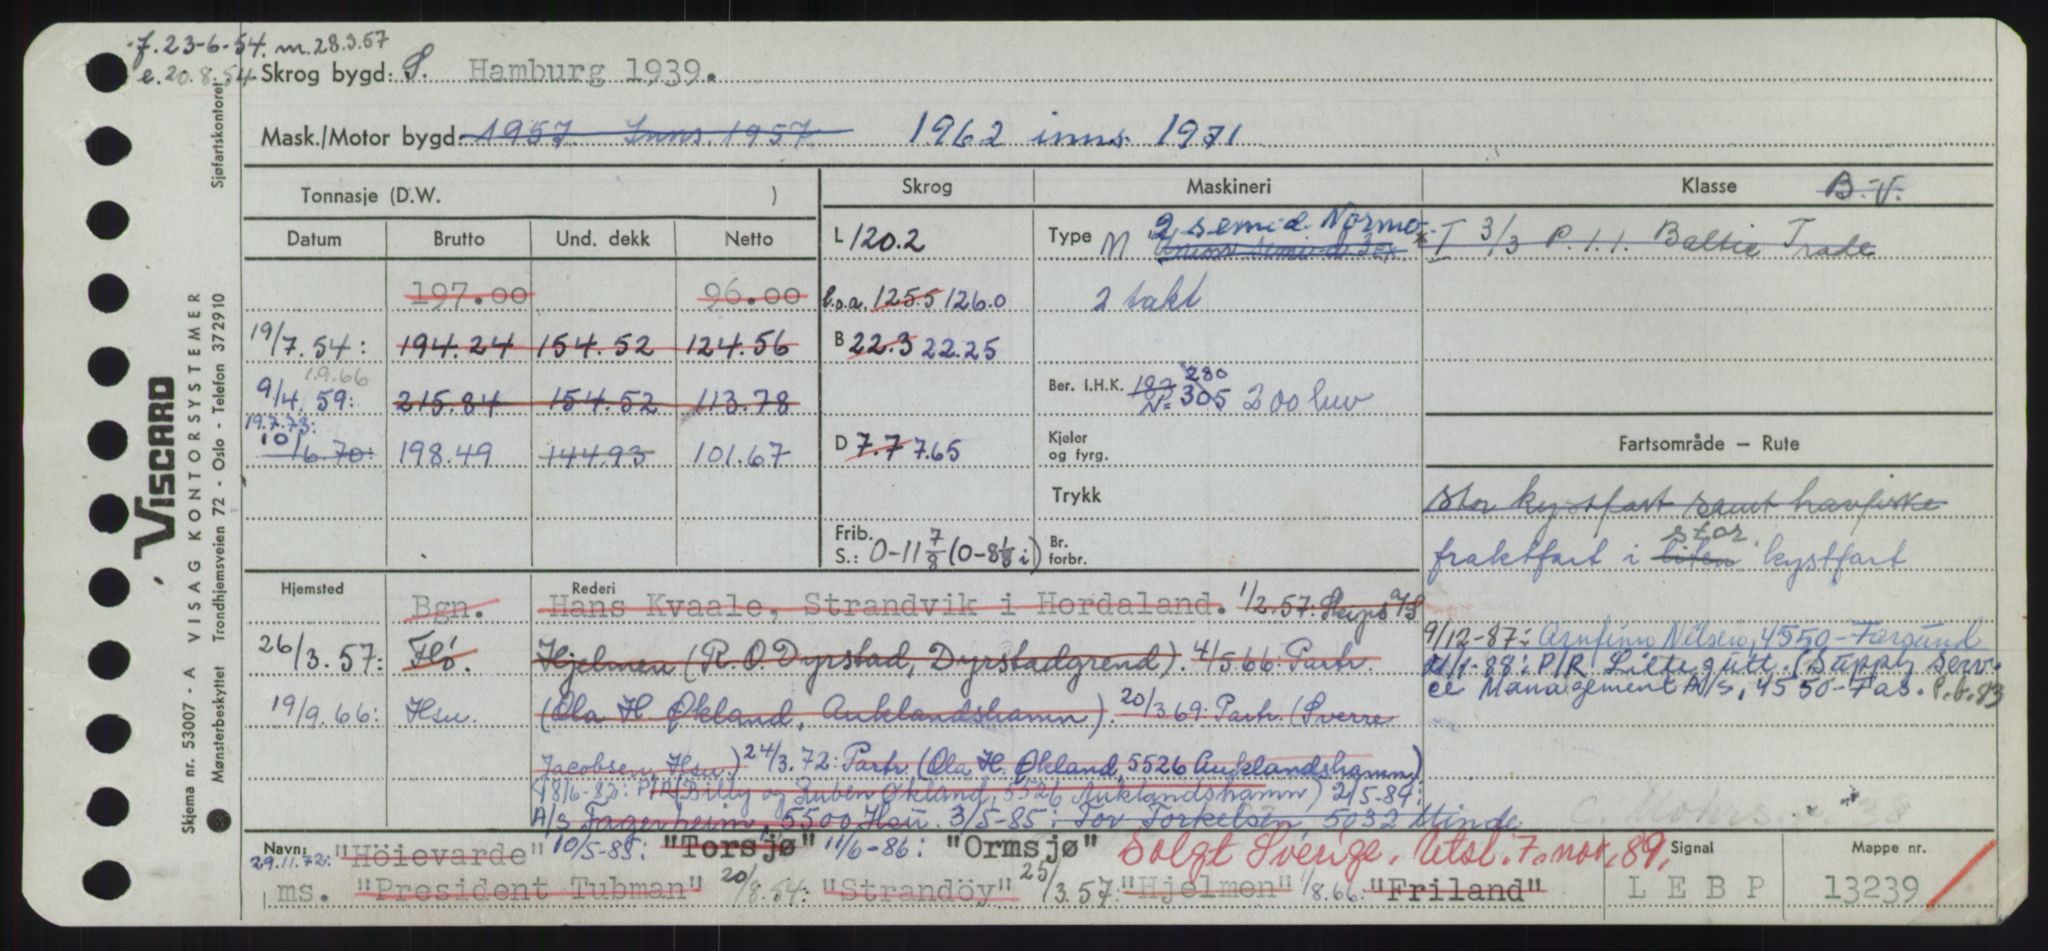 f. 23-6-54. m. 28.3.57
e. 20.8.54
Skrog bygd. S. Hamburg 1939.
Mask./Motor bygd. 1957. Inns. 1957. 1962 inns. 1971
Tonnasje (D.W. )
Skrog
Maskineri
Klasse B.V.
Datum Brutto Und. dekk Netto
L 120.2
Type M 2 semi d. Normo
I 3/3 P. 1.1. Baltic Trade
197.00 96.00
l.o.a. 125.5 126.0
2 takt
19/7.54: 194.24 154.52 124.56
B 22.3 22.25
1.9.66
9/4.59: 215.84 154.52 113.78
Ber. I.H.K. 182 280
N= 305 200 luv
19.7.73:
10/6.70: 198.49 144.93 101.67
D 7.7 7.65
Kjeler
og fyrg.
Fartsområde – Rute
Trykk
stor kystfart samt havfiske
Frib.
S.: 0-11 7/8 (0-8 1/8 i)
Br.
forbr.
stor
fraktfart i liten kystfart
Hjemsted
Rederi
Bgn. Hans Kvaale, Strandvik i Hordaland. 1/2.57: Skips A/S
26/3.57: Flö. Hjelmen (R.O. Dyrstad, Dyrstadgrend). 4/5.66: Partr.
19/9.66: Hsu. (Ola H. Økland, Auklandshamn). 20/3.69: Partr. (Sverre
Jacobsen, Hsu.) 24/3.72: Partr. (Ola H. Økland, 5526 Auklandshamn)
8/6-83: P/R (Billy og Ruben Økland, 5526 Auklandshamn) 2/5-84:
A/S Fagerheim, 5500 Hsu. 3/5-85: Tov Torkelsen 5032 Minde
9/12-87: Arnfinn Nilsen, 4550-Farsund
21/1-88: P/R Lillegutt. (Supply Serv-
ce Management A/S, 4550-Fas. P.b.83
C. Mohrs 38
Navn:
29.11.72: "Höievarde" 10/5-85: "Torsjø" 11/6-86: "Ormsjø" Solgt Sverige. Utsl. 7. nov. 89.
ms. "President Tubman" 20/8.54: "Strandöy" 25/3.57: "Hjelmen" 1/8.66: "Friland"
Signal
LEBP
Mappe nr.
13239
VISCARD
Skjema nr. 53007 - A VISAG KONTORSYSTEMER
Mønsterbeskyttet Trondhjemsveien 72 - Oslo - Telefon 372910
Sjøfartskontoret